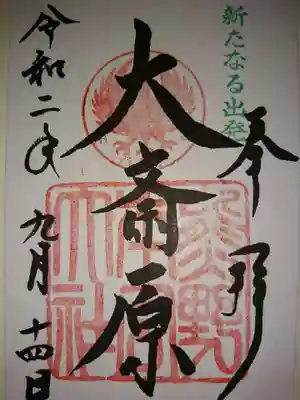 新たなる出発
奉拝
大斎原
令和二年
九月
十四日
熊野
大社